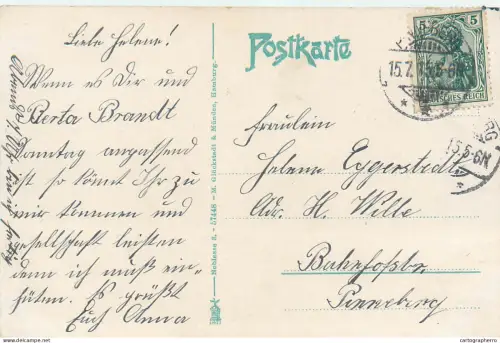 Liebe Helene!
Wenn es Dir und
Berta Brandt
Sonntag anpassend
ist so könnt Ihr zu
mir kommen und
gesellschaft leisten
denn ich muß ein-
hüten. Es grüßt
Euch Anna
M. Glückstadt & Münden, Hamburg.
57448
Postkarte
5 5
DEUTSCHES REICH
15.7.
5-6N
Fräulein
Helene Eggerstedt
Adr. H. Wille
Bahnhofstr.
Pinneberg
cartographero